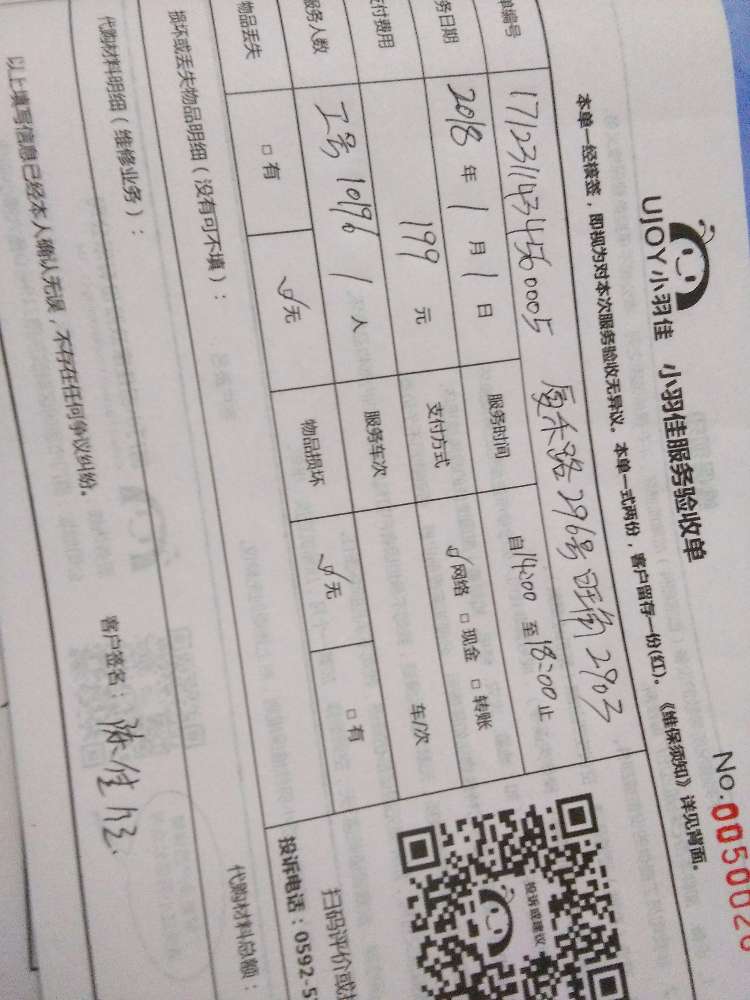 UJOY小羽佳 小羽佳服务验收单
No:0050026
本单一经接签，即视为对本次服务验收无异议。本单一式两份，客户留存一份(红)。《维保须知》详见背面。
单编号 1712311434560005 厦禾路296号 2903
务日期 2018年1月1日 服务时间 自14:00至18:00止
支付费用 199元 支付方式 网络 □现金 □转账
服务人数 工号10196 1人 服务车次 车/次
物品丢失 □有 无 物品损坏 无 □有
投诉或建议
扫码评价或
投诉电话：0592-5
损坏或丢失物品明细（没有可不填）：
代购材料明细（维修业务）： 代购材料总额：
以上填写信息已经本人确认无误，不存在任何争议纠纷。 客户签名：陈佳